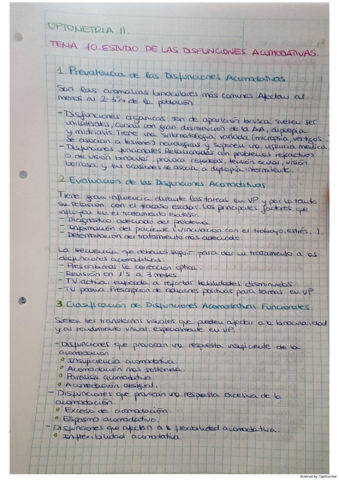 OPTOMETRIA II.
TEMA 10. ESTUDIO DE LAS DISFUNCIONES ACOMODATIVAS.
1. Prevalencia de las Disfunciones Acomodativas
Son las anomalías binoculares más comunes. Afectan al
menos al 2-3% de la población
- Disfunciones orgánicas: son de aparición brusca, suelen ser
unilaterales, cursan con gran disminución de la AA, diplopía
y midriasis. Tiene una sintomatología variada (micropsia, vértigos).
Se asocian a lesiones neurológicas y suponen una urgencia médica.
- Disfunciones funcionales: Relacionadas con problemas refractivos
o de visión binocular, provoca cefaleas, tensión ocular, visión
borrosa y en ocasiones se asocia a diplopía intermitente.
2. Evaluación de las Disfunciones Acomodativas
Tiene gran influencia durante las tareas en VP y por lo tanto
su relación con el fracaso escolar. Los principales factores que
influyen en el tratamiento exitoso:
- Diagnóstico adecuado del problema
- Información del paciente (vinculación con el trabajo, estrés...)
- Determinación del tratamiento más adecuado
La secuencia que debemos seguir para dar un tratamiento a las
disfunciones acomodativas:
- Prescribimos la corrección óptica.
- Revisión en 1'5 a 3 meses.
- TV activa: enfocada a reforzar habilidades disminuidas.
- TV pasiva: Prescripción de adiciones positivas para tareas en VP.
3. Clasificación de Disfunciones Acomodativas Funcionales
Suelen ser transtornos visuales que pueden afectar a la binocularidad
y al rendimiento visual, especialmente en VP.
- Disfunciones que provocan una respuesta insuficiente de la
acomodación
Insuficiencia acomodativa
Acomodación mal sostenida
Parálisis acomodativa
Acomodación desigual.
- Disfunciones que provocan una respuesta excesiva de la
acomodación.
Exceso de acomodación
Espasmo acomodativo.
- Disfunciones que afectan a la flexibilidad acomodativa.
Inflexibilidad acomodativa.
Scanned by TapScanner